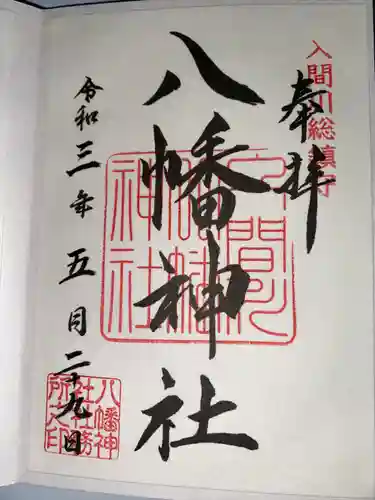 入間川総鎮守
奉拝
八幡神社
入間川八幡神社
令和三年五月二十九日
八幡神社社務所之印